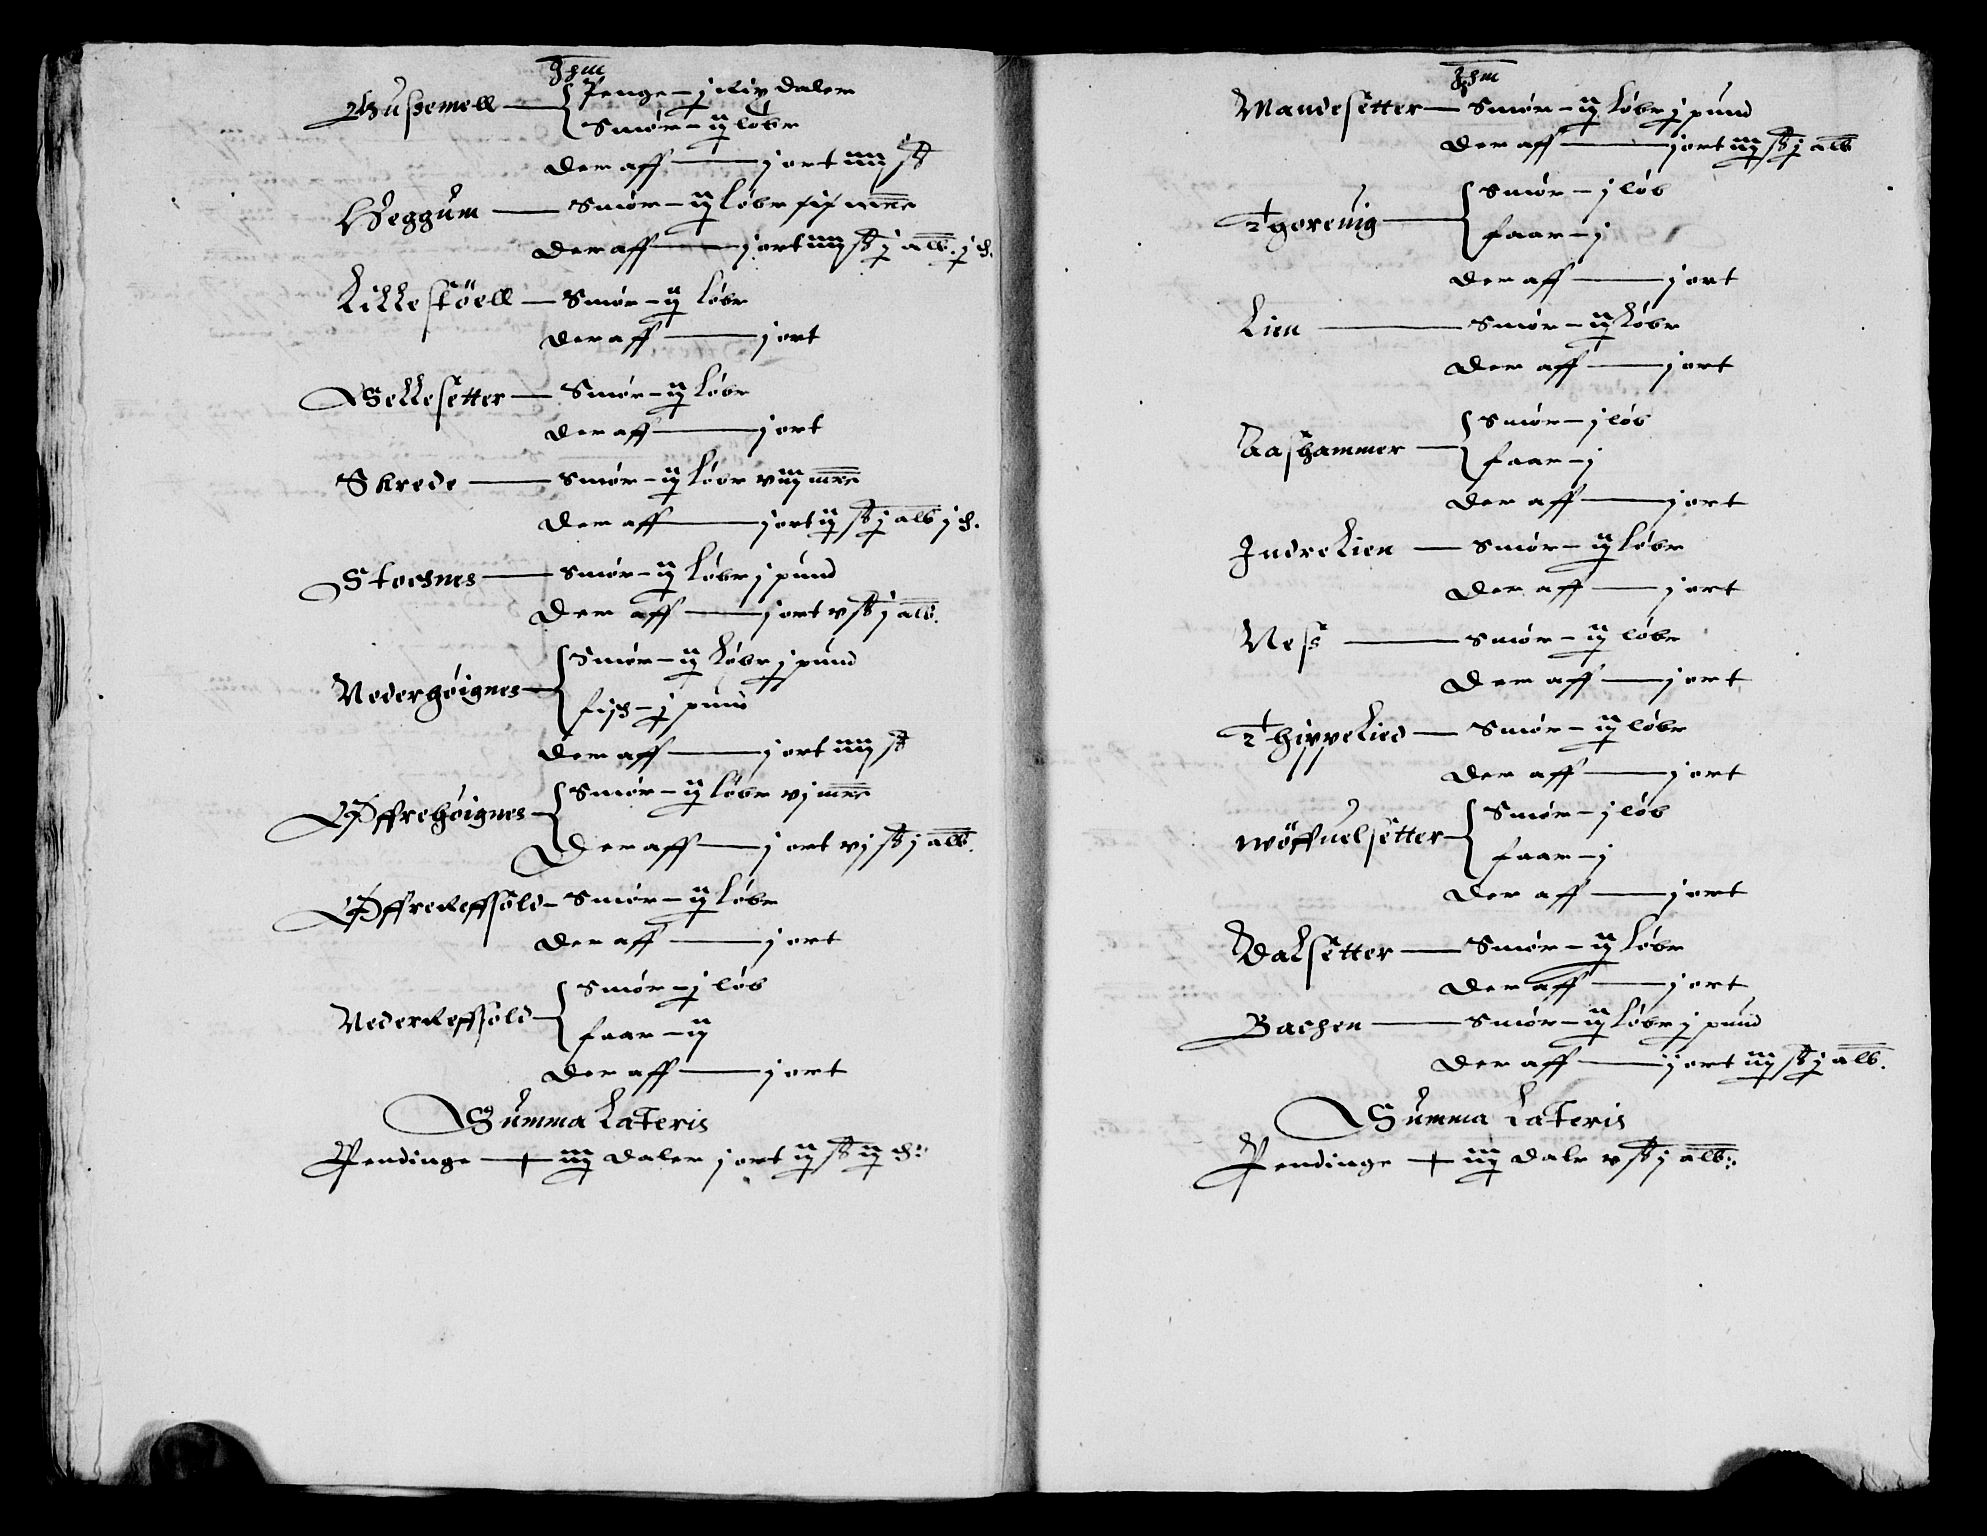 Ihm
Husemell — Penge – j Rix daler
Smør – ij løbr
Der aff — j ort iiij sk
Heggum — Smør – ij løbr xix mrc
Der aff — j ort iiij sk j alb. j ch.
Lillestöell — Smør – ij løbr
Der aff — j ort
Gellesetter — Smør – ij løbr
Der aff — j ort
Skrede — Smør – ij løbr viij mrc
Der aff — j ort ij sk j alb j ch.
Stochnes — Smør – ij løbr j pund
Der aff — j ort v sk j alb.
Nederhøignes — Smør – ij løbr j pund
fisch – j pund
Der aff — j ort iiij sk
Øffrehøignes — Smør – ij løbr vj mrc
Der aff — j ort vj sk j alb.
Øffrereffsöld – Smør – ij løbr
Der aff — j ort
Nederreffsöld — Smør – j løb
faar – ij
Der aff — j ort
Summa Lateris
Pendinge — iiij daler j ort ij sk ij ch:
Ihm
Mandesetter — Smør – ij løbr j pund
Der aff — j ort iij sk j alb
Thoreuig — Smør – j løb
faar – j
Der aff — j ort
Lien — Smør – ij løbr
Der aff — j ort
Aashammer — Smør – j løb
faar – j
Der aff — j ort
Indrelien — Smør – ij løbr
Der aff — j ort
Ness — Smør – ij løbr
Der aff — j ort
Thippelied — Smør – ij løbr
Der aff — j ort
Wöffuelsetter — Smør – j løb
faar – j
Der aff — j ort
Dalsetter — Smør – ij løbr
Der aff — j ort
Bachen — Smør – ij løbr j pund
Der aff — j ort iij sk j alb.
Summa Lateris
Pendinge — iij dalr v sk j alb: